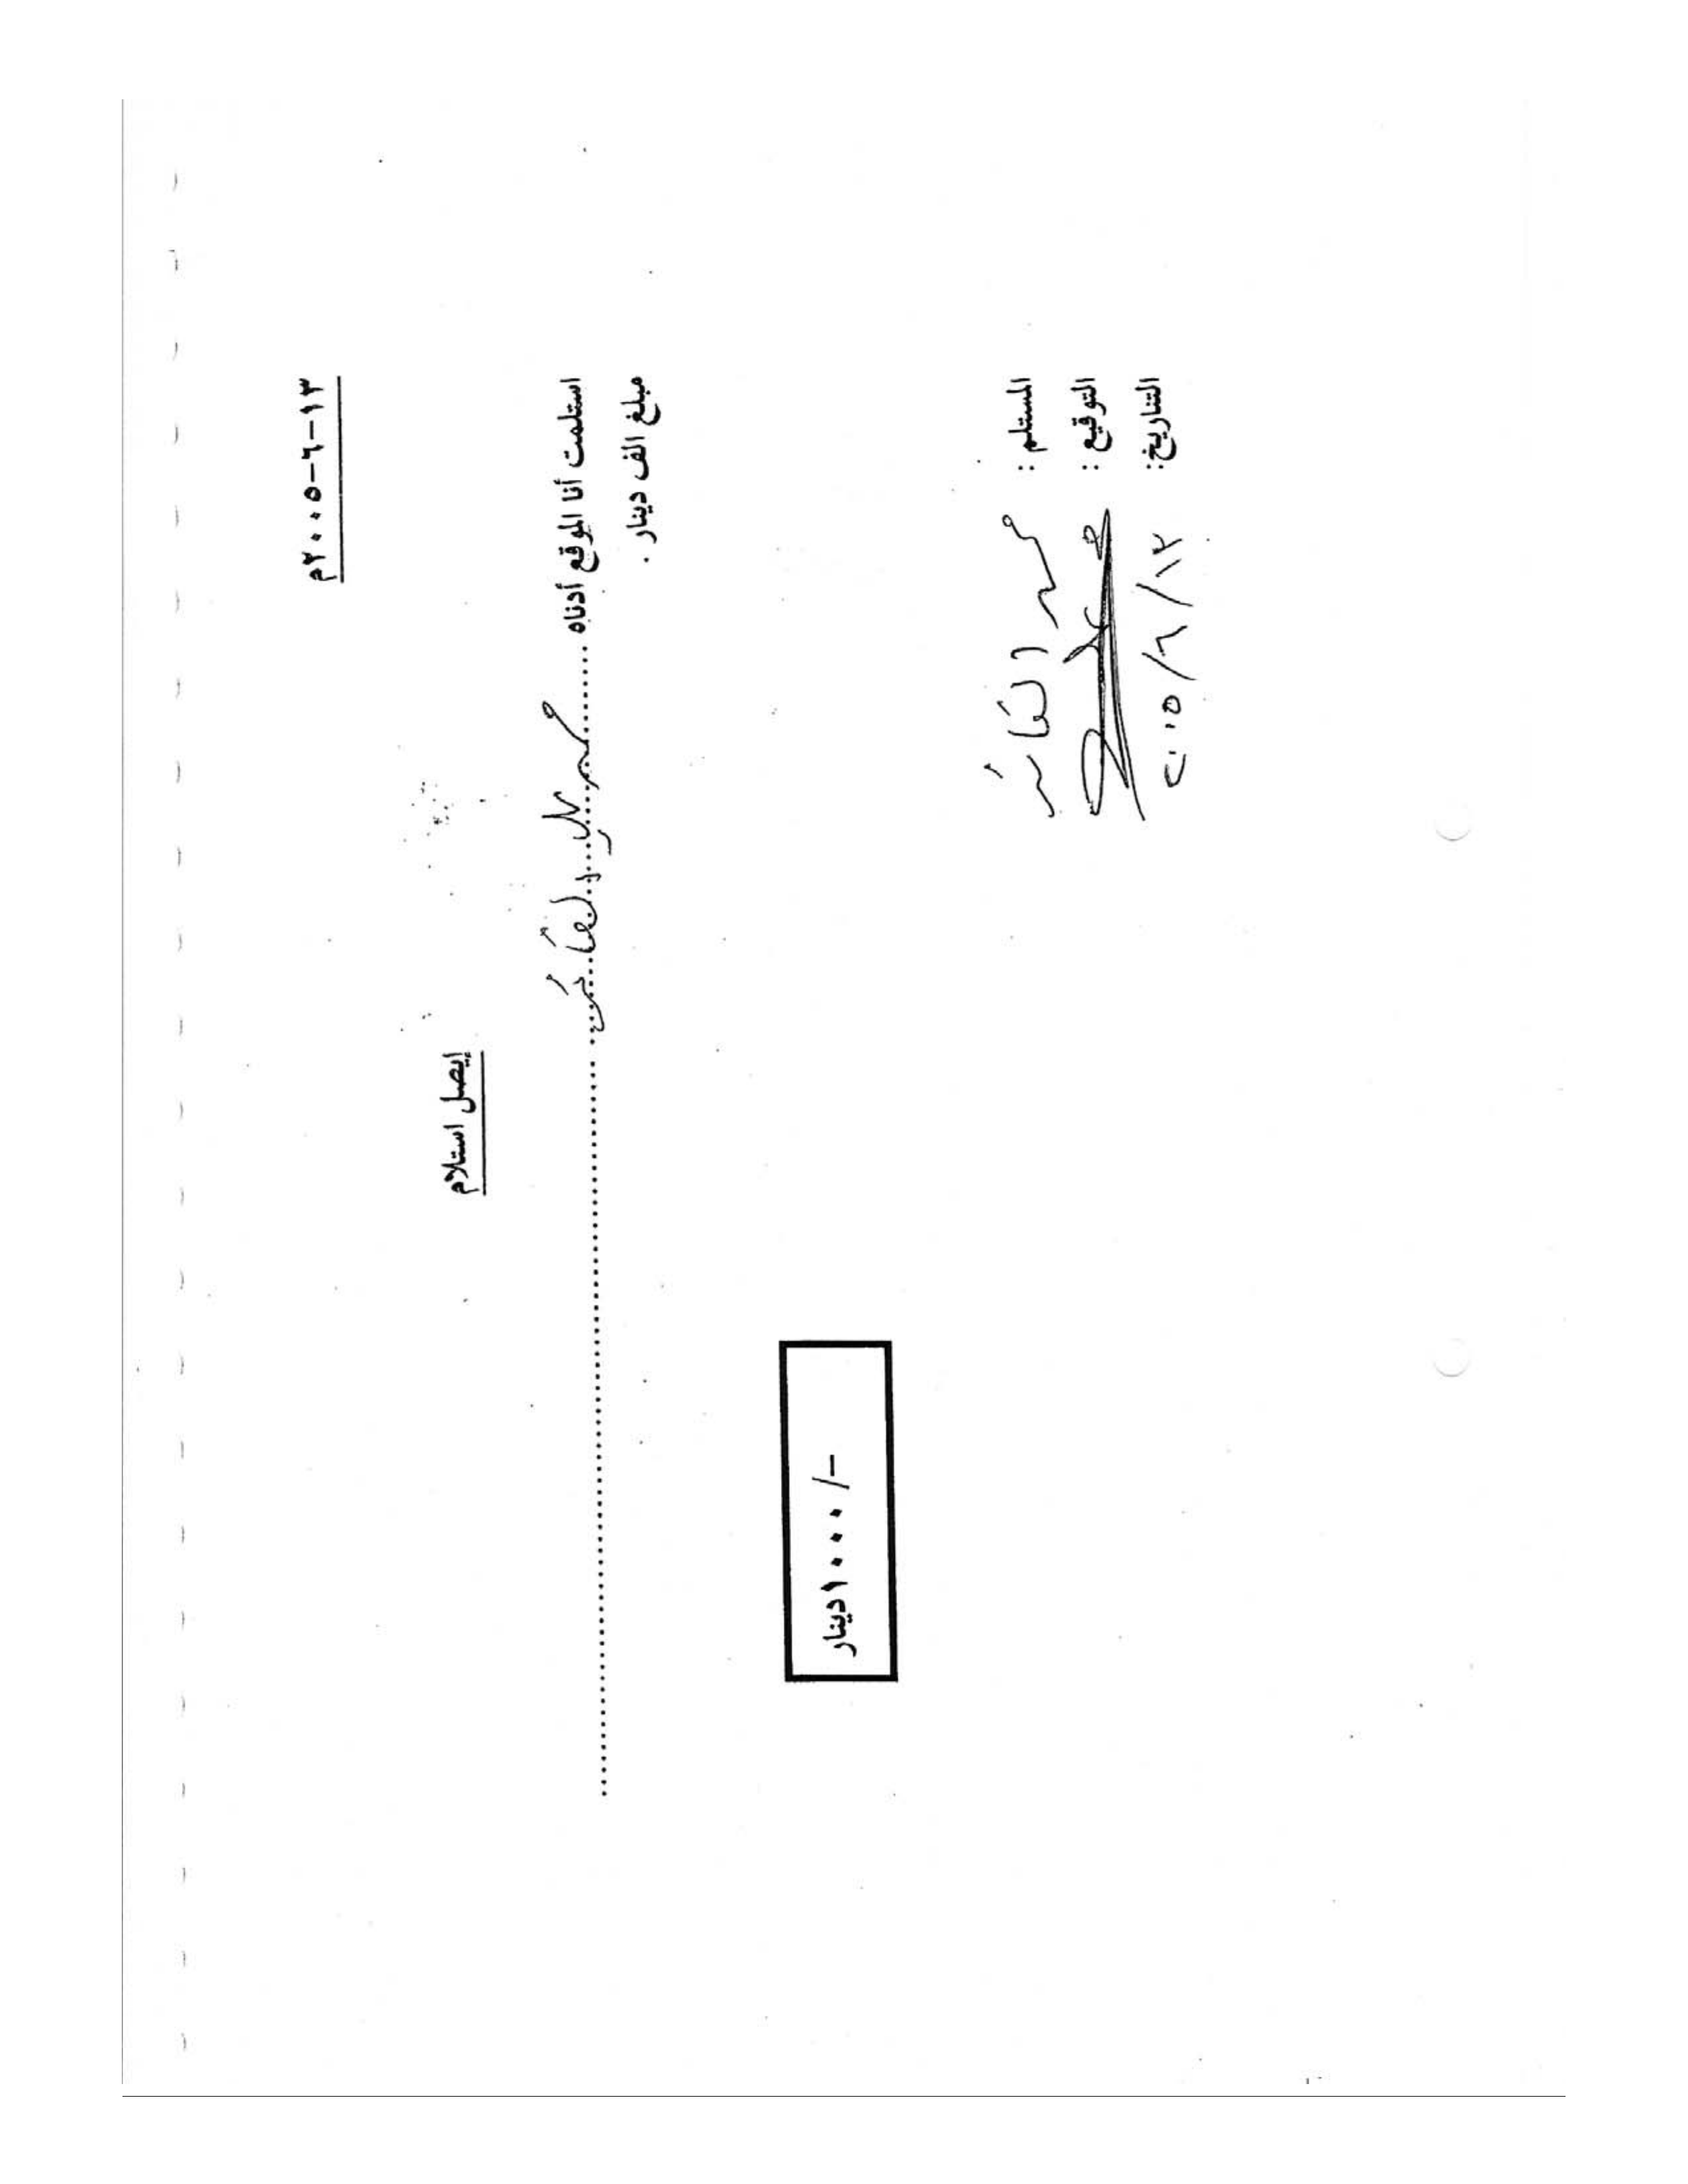 ١٣-٦-٢٠٠٥م
إيصل استلام
استلمت أنا الموقع أدناه ........ محمد علي القائد ........
مبلغ الف دينار .
١٠٠٠/- دينار
المستلم : محمد القائد
التوقيع :
التاريخ: ٢٠٠٥/٦/١٢